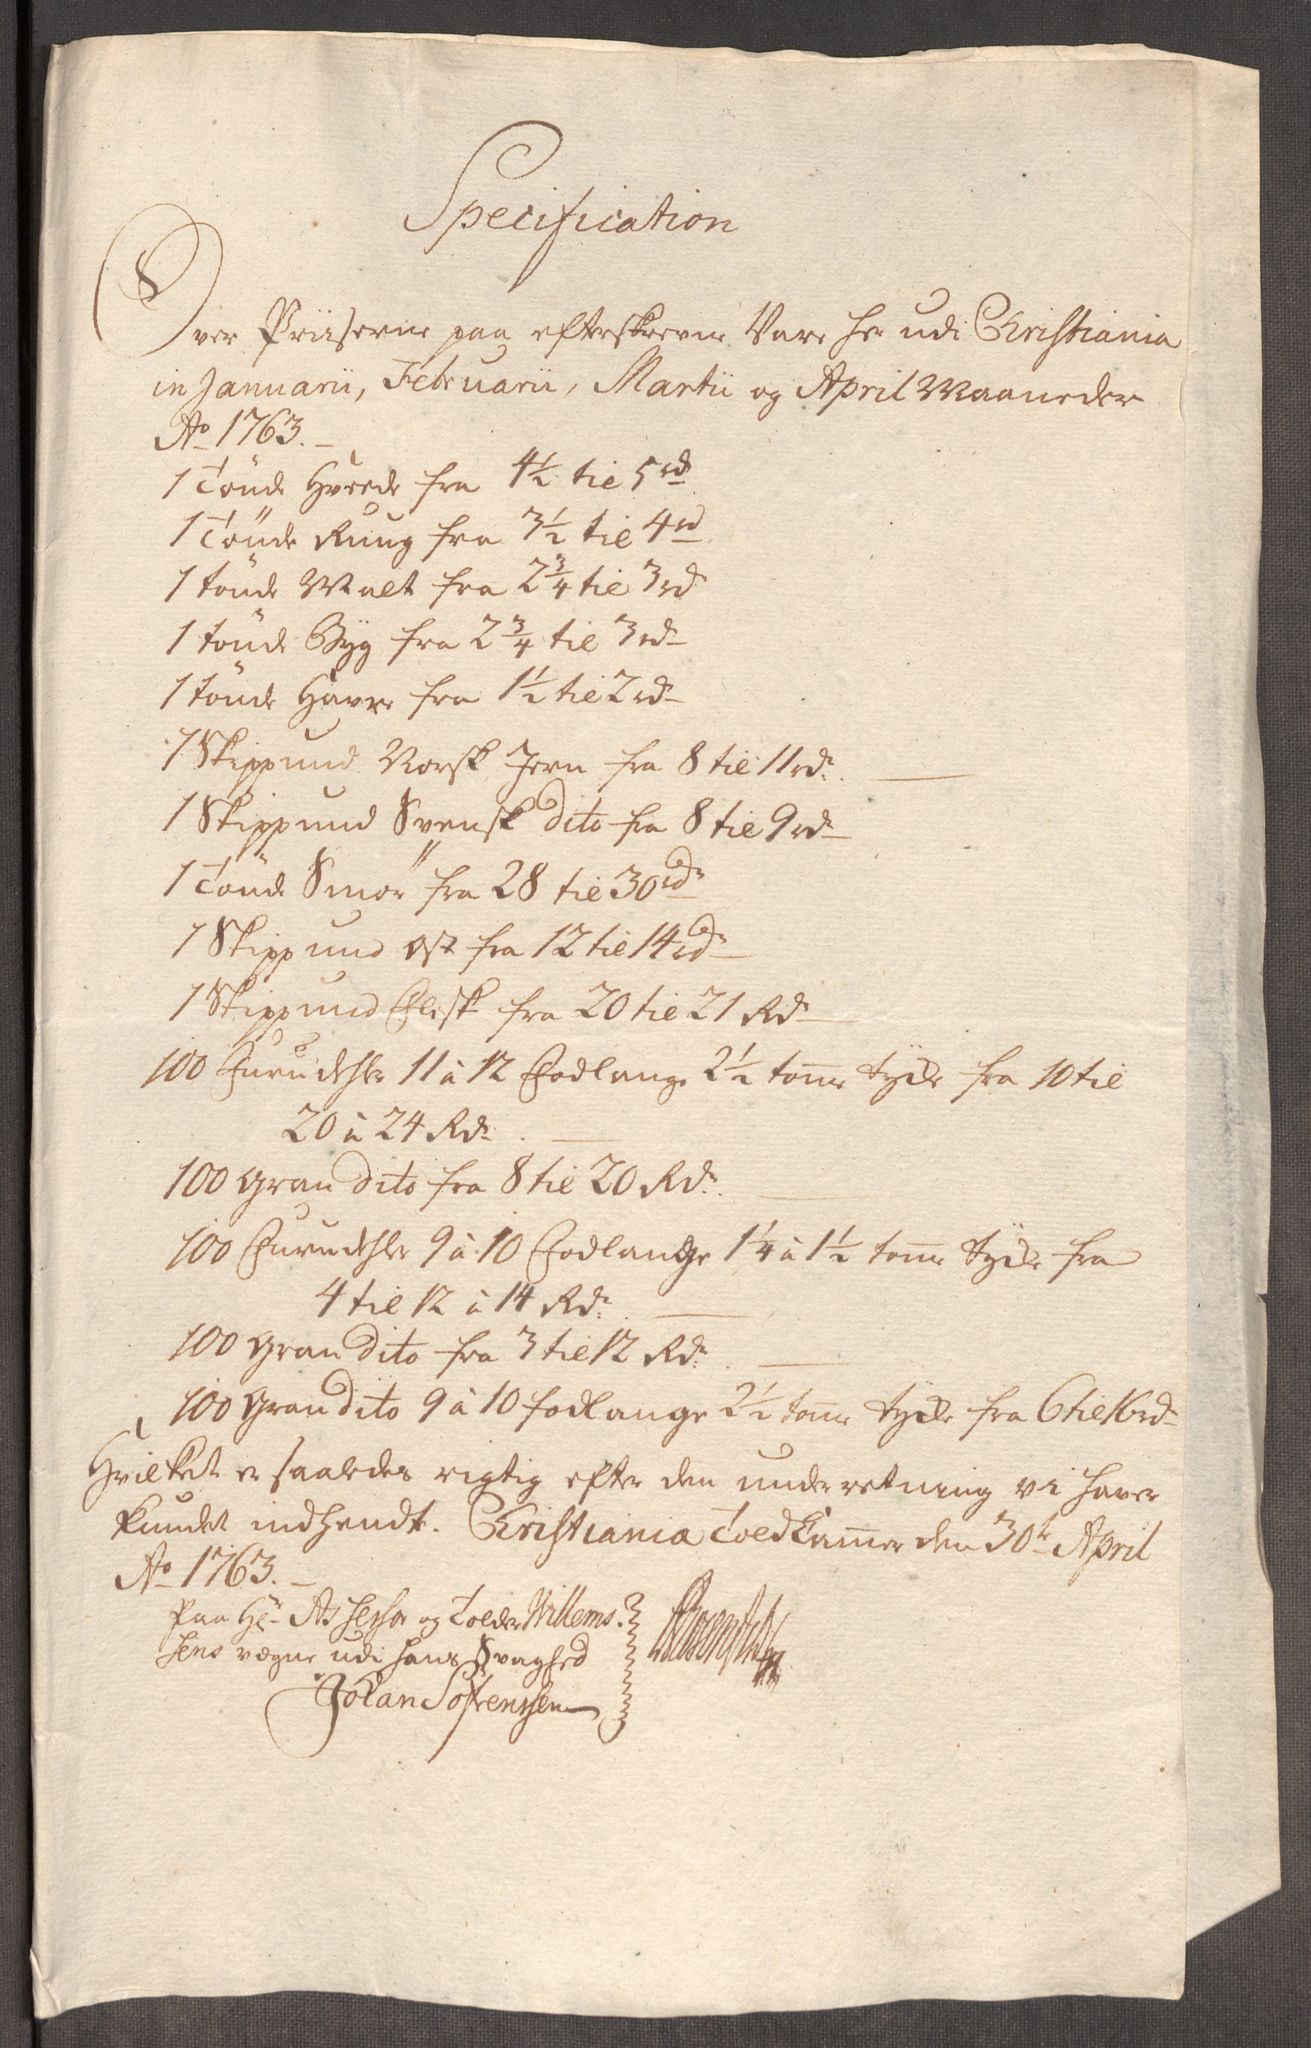 Specification
Over Priiserne paa efterskrevne Vare her udi Christiania
in Januarii, Februarii, Martii og April Maaneder
Ao 1763.
1 Tönde Hvede fra 4½ til 5 rd
1 Tönde Rug fra 3½ til 4 rd
1 tönde Malt fra 2¾ til 3 rd
1 tönde Byg fra 2¾ til 3 rd
1 tönde Havre fra 1½ til 2 rd
1 Skippund Norsk Jern fra 8 til 11 rd.
1 Skippund Svensk dito fra 8 til 9 rd
1 Tönde Smör fra 28 til 30 rd
1 Skippund Ost fra 12 til 14 rd
1 Skippund Flesk fra 20 til 21 Rd
100 Furudehler 11 à 12 Fodlange 2½ tome tycke fra 10 til
20 à 24 Rd.
100 Gran dito fra 8 til 20 Rd.
100 Furudehler 9 à 10 Fodlange 1¼ à 1½ tome tycke fra
4 til 12 à 14 Rd.
100 Gran dito fra 3 til 12 Rd.
100 Gran dito 9 à 10 fodlange 2½ tome tycke fra 6 til 16 rd
Hvilket er saaledes rigtig efter den underretning vi haver
kundet indhendt. Christiania Toldkamer den 30te April
Ao 1763.
Paa Hr. Assessor og Tolder Willems-
sens vegne udi hans Svaghed
Johan Sörenssen